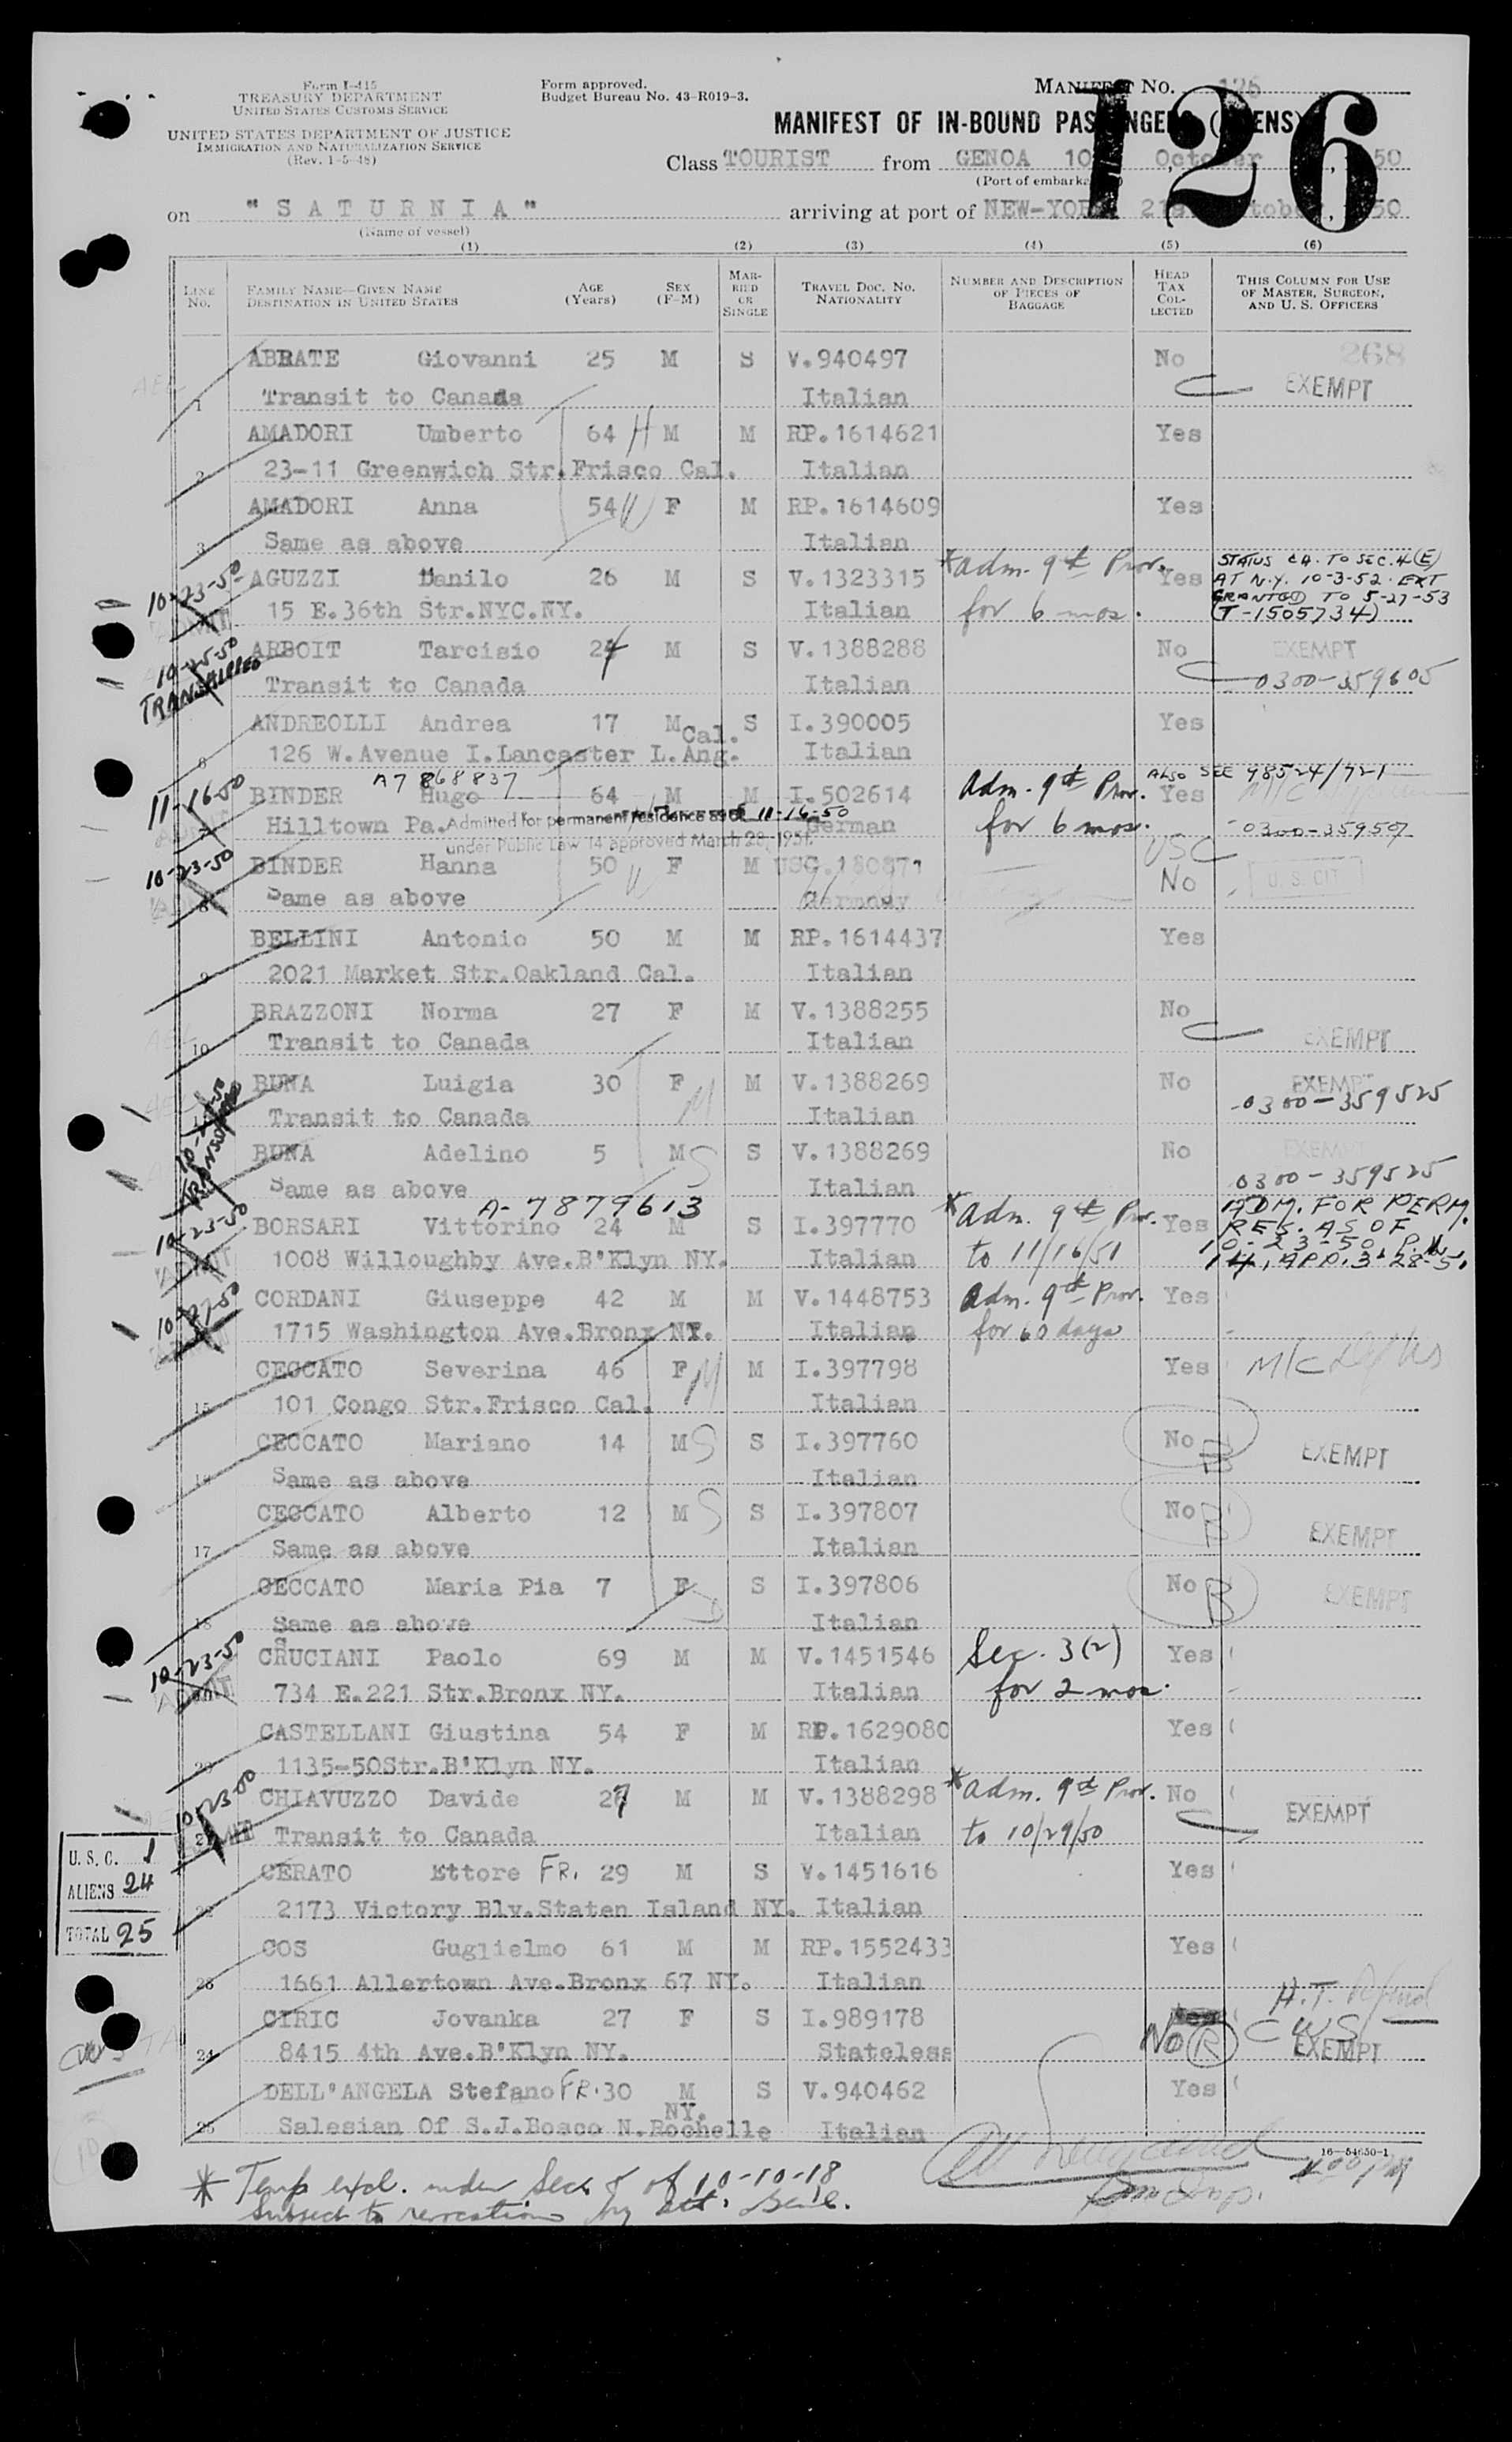 Form I-415
TREASURY DEPARTMENT
UNITED STATES CUSTOMS SERVICE
UNITED STATES DEPARTMENT OF JUSTICE
IMMIGRATION AND NATURALIZATION SERVICE
(Rev. 1-5-48)
Form approved.
Budget Bureau No. 43-R019-3.
MANIFEST NO. 126
126
MANIFEST OF IN-BOUND PASSENGERS (ALIENS)
Class TOURIST from GENOA 10 October, 50
(Port of embarkation)
on "SATURNIA" arriving at port of NEW-YORK 21st October, 50
(Name of vessel)
(1) (2) (3) (4) (5) (6)
LINE No. FAMILY NAME—GIVEN NAME DESTINATION IN UNITED STATES AGE (Years) SEX (F-M) MARRIED OR SINGLE TRAVEL DOC. NO. NATIONALITY NUMBER AND DESCRIPTION OF PIECES OF BAGGAGE HEAD TAX COLLECTED THIS COLUMN FOR USE OF MASTER, SURGEON, AND U. S. OFFICERS
268
ABRATE Giovanni 25 M S V.940497 No EXEMPT
1 Transit to Canada Italian
AMADORI Umberto 64 H M M RP.1614621 Yes
2 23-11 Greenwich Str.Frisco Cal. Italian
AMADORI Anna 54 W F M RP.1614609 Yes
3 Same as above Italian
10-23-50 AGUZZI Danilo 26 M S V.1323315 *Adm. 9th Prov. Yes STATUS CH. TO SEC. 4(E)
AT N.Y. 10-3-52. EXT
15 E.36th Str.NYC.NY. Italian for 6 mos. GRANTED TO 5-27-53
(T-1505734)
10-25-50 ARBOIT Tarcisio 24 M S V.1388288 No EXEMPT
TRANSHIPPED Transit to Canada Italian 0300-359605
ANDREOLLI Andrea 17 M S I.390005 Yes
6 126 W.Avenue I.Lancaster L.Ang. Cal. Italian
A7 868837 ALSO SEE 98524/721
11-16-50 BINDER Hugo 64 M M I.502614 Adm. 9th Prov. Yes M/C
7 Hilltown Pa. Admitted for permanent residence as of 11-16-50 German for 6 mos. 0300-359507
under Public Law 14 approved March 28, 1951.
10-23-50 BINDER Hanna 50 W F M USC.180871 USC No U. S. CIT
8 Same as above Germany
BELLINI Antonio 50 M M RP.1614437 Yes
9 2021 Market Str.Oakland Cal. Italian
BRAZZONI Norma 27 F M V.1388255 No
10 Transit to Canada Italian EXEMPT
BUNA Luigia 30 F M M V.1388269 No EXEMPT
Transit to Canada Italian 0300-359525
BUNA Adelino 5 M S S V.1388269 No EXEMPT
Same as above Italian 0300-359525
A-7879613
10-23-50 BORSARI Vittorino 24 M S I.397770 *Adm. 9th Prov. Yes ADM. FOR PERM.
RES. AS OF
1008 Willoughby Ave.B'Klyn NY. Italian to 11/16/51 10-23-50 P.L.
14, APP. 3-28-51
10-27-50 CORDANI Giuseppe 42 M M V.1448753 Adm. 9th Prov. Yes
1715 Washington Ave.Bronx NY. Italian for 60 days
CECCATO Severina 46 F M M I.397798 Yes M/C
15 101 Congo Str.Frisco Cal. Italian
CECCATO Mariano 14 M S S I.397760 No B EXEMPT
16 Same as above Italian
CECCATO Alberto 12 M S S I.397807 No B
17 Same as above Italian EXEMPT
CECCATO Maria Pia 7 F S I.397806 No B EXEMPT
18 Same as above Italian
10-23-50 CRUCIANI Paolo 69 M M V.1451546 Sec. 3(2) Yes
734 E.221 Str.Bronx NY. Italian for 2 mos.
CASTELLANI Giustina 54 F M RP.1629080 Yes
20 1135-50Str.B'Klyn NY. Italian
10-23-50 CHIAVUZZO Davide 27 M M V.1388298 *Adm. 9th Prov. No EXEMPT
21 Transit to Canada Italian to 10/29/50
U. S. C. 1
ALIENS 24
TOTAL 25
CERATO Ettore FR. 29 M S V.1451616 Yes
22 2173 Victory Blv.Staten Island NY. Italian
COS Guglielmo 61 M M RP.1552433 Yes
23 1661 Allertown Ave.Bronx 67 NY. Italian
H.T. Refund
CIRIC Jovanka 27 F S I.989178 No (R) CWS
24 8415 4th Ave.B'Klyn NY. Stateless EXEMPT
DELL'ANGELA Stefano FR. 30 M S V.940462 Yes
25 Salesian Of S.J.Bosco N.Rochelle NY. Italian
16-54650-1
* Temp excl. under Sec of 10-10-18
Subject to revocation by